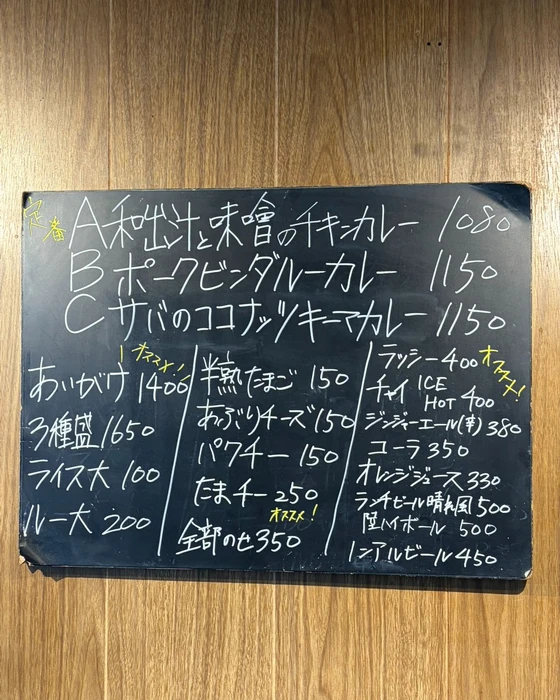 定番
A 和出汁と味噌のチキンカレー 1080
B ポークビンダルーカレー 1150
C サバのココナッツキーマカレー 1150
オススメ!
あいがけ 1400
3種盛 1650
ライス大 100
ルー大 200
半熟たまご 150
あぶりチーズ 150
パクチー 150
たまチー 250
オススメ!
全部のせ 350
ラッシー 400
オススメ!
チャイ ICE HOT 400
ジンジャーエール(辛) 380
コーラ 350
オレンジジュース 330
ランチビール晴れ風 500
陸ハイボール 500
ノンアルビール 450